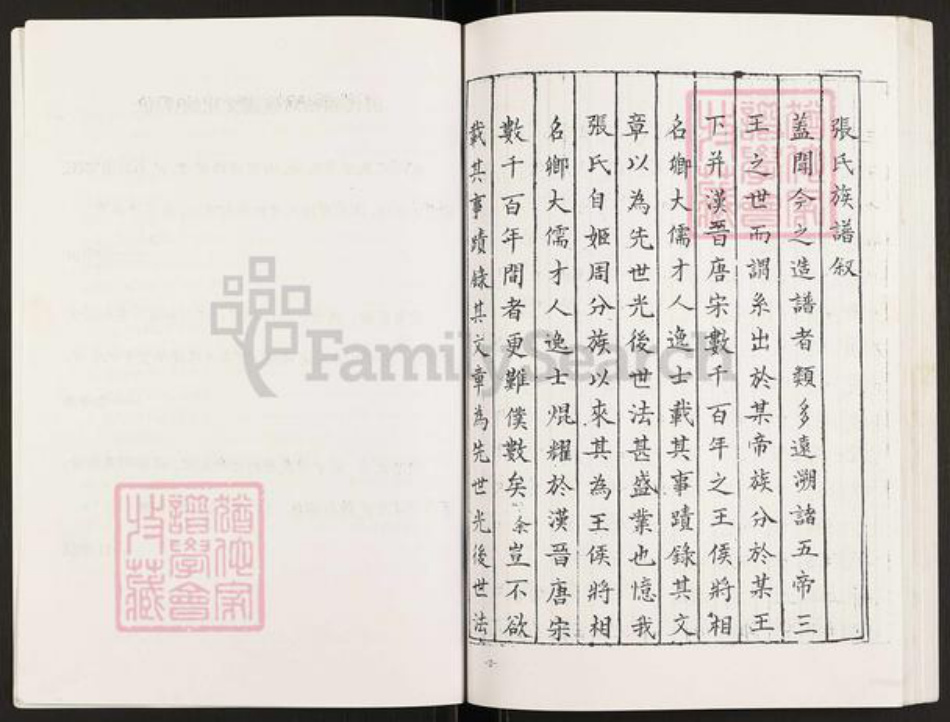 張氏族譜叙
蓋聞今之造譜者類多遠溯諸五帝三
王之世而謂系出於某帝族分於某王
下并漢晋唐宋數千百年之王侯將相
名鄉大儒才人逸士載其事蹟錄其文
章以為先世光後世法甚盛業也憶我
張氏自姬周分族以來其為王侯將相
名鄉大儒才人逸士焜耀於漢晋唐宋
數千百年間者更難僕數矣余豈不欲
載其事蹟錄其文章為先世光後世法
FamilySearch
譜學會